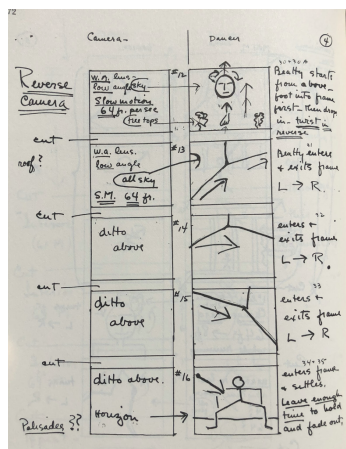 Camera -
Dancer
4
Reverse
Camera
W.A. lens -
low angle sky
Slow motion
64 fr. per sec
tree tops
#12
Beatty starts
from above -
foot into frame
first - then drop
in - twist in
reverse
cut
roof?
W.a. lens.
low angle
all sky
S.M. 64 fr.
#13
31
Beatty enters
& exits frame
L → R
cut
ditto
above
#14
32
enters &
exits frame
L → R.
cut
ditto
above
#15
33
enters &
exits frame
L → R
cut
ditto above.
Horizon
#16
34+35
enters frame
& settles.
Leave enough
time to hold
and fade out.
Palisades ??